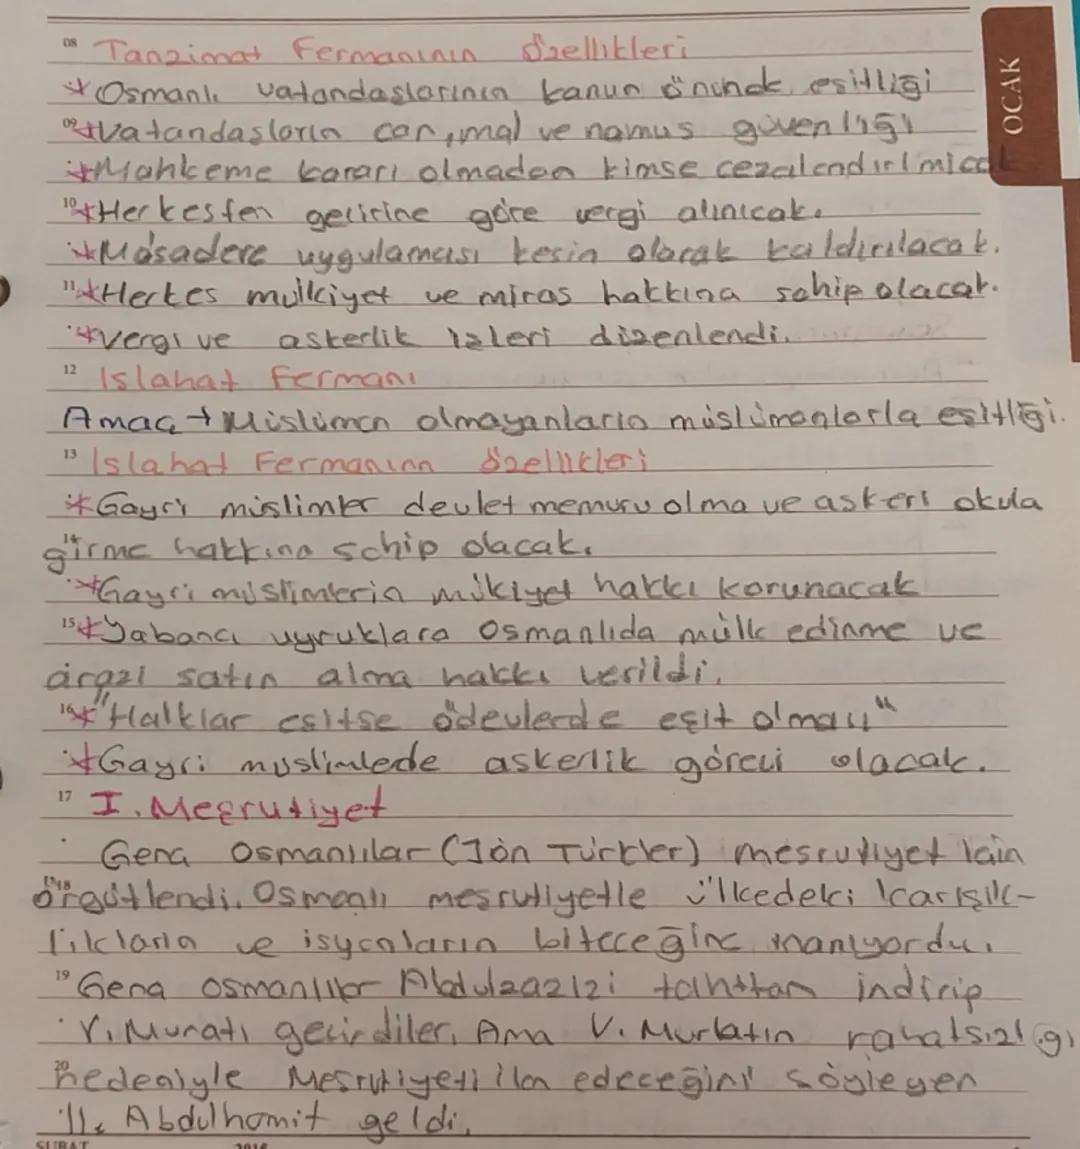 OCAK
08 Tanzimat Fermanının özellikleri
* Osmanlı vatandaslarının kanun önünde esitliği
09 * Vatandasların can, mal ve namus güvenliği
* Mahkeme kararı olmadan kimse cezalendırlmicak
10 * Herkesten gelirine göre vergi alınıcak.
* Müsadere uygulaması kesin olarak kaldırılacak.
11 * Herkes mülkiyet ve miras hakkına sahip olacak.
* Vergi ve askerlik izleri düzenlendi.
12 Islahat Fermanı
Amaç → Müslüman olmayanların müslümanlarla esitliği.
13 Islahat Fermanının özellikleri
* Gayri müslimler devlet memuru olma ve askeri okula
girme hakkına sahip olacak.
* Gayri müslimlerin mülkiyet hakkı korunacak
15 * Yabancı uyruklara Osmanlıda mülk edinme ve
arazi satın alma hakkı verildi.
16 * "Halklar esitse ödevlerde eşit olmalı"
* Gayri muslimlede askerlik görevi olacak.
17 I. Meşrutiyet
Genç Osmanlılar (Jön Türkler) mesrutiyet için
18 örgütlendi. Osmanlı mesrutiyetle ülkedeki karışık-
lıkların ve isyanların biteceğine inanıyordu.
19 Genç osmanlılar Abdulzazizi tahttan indirip
V. Muratı geçirdiler. Ama V. Muratın rahatsızlığı
20 nedeniyle Mesrutiyeti ilan edeceğini söyleyen
II. Abdulhamit geldi.
SUBAT 2016